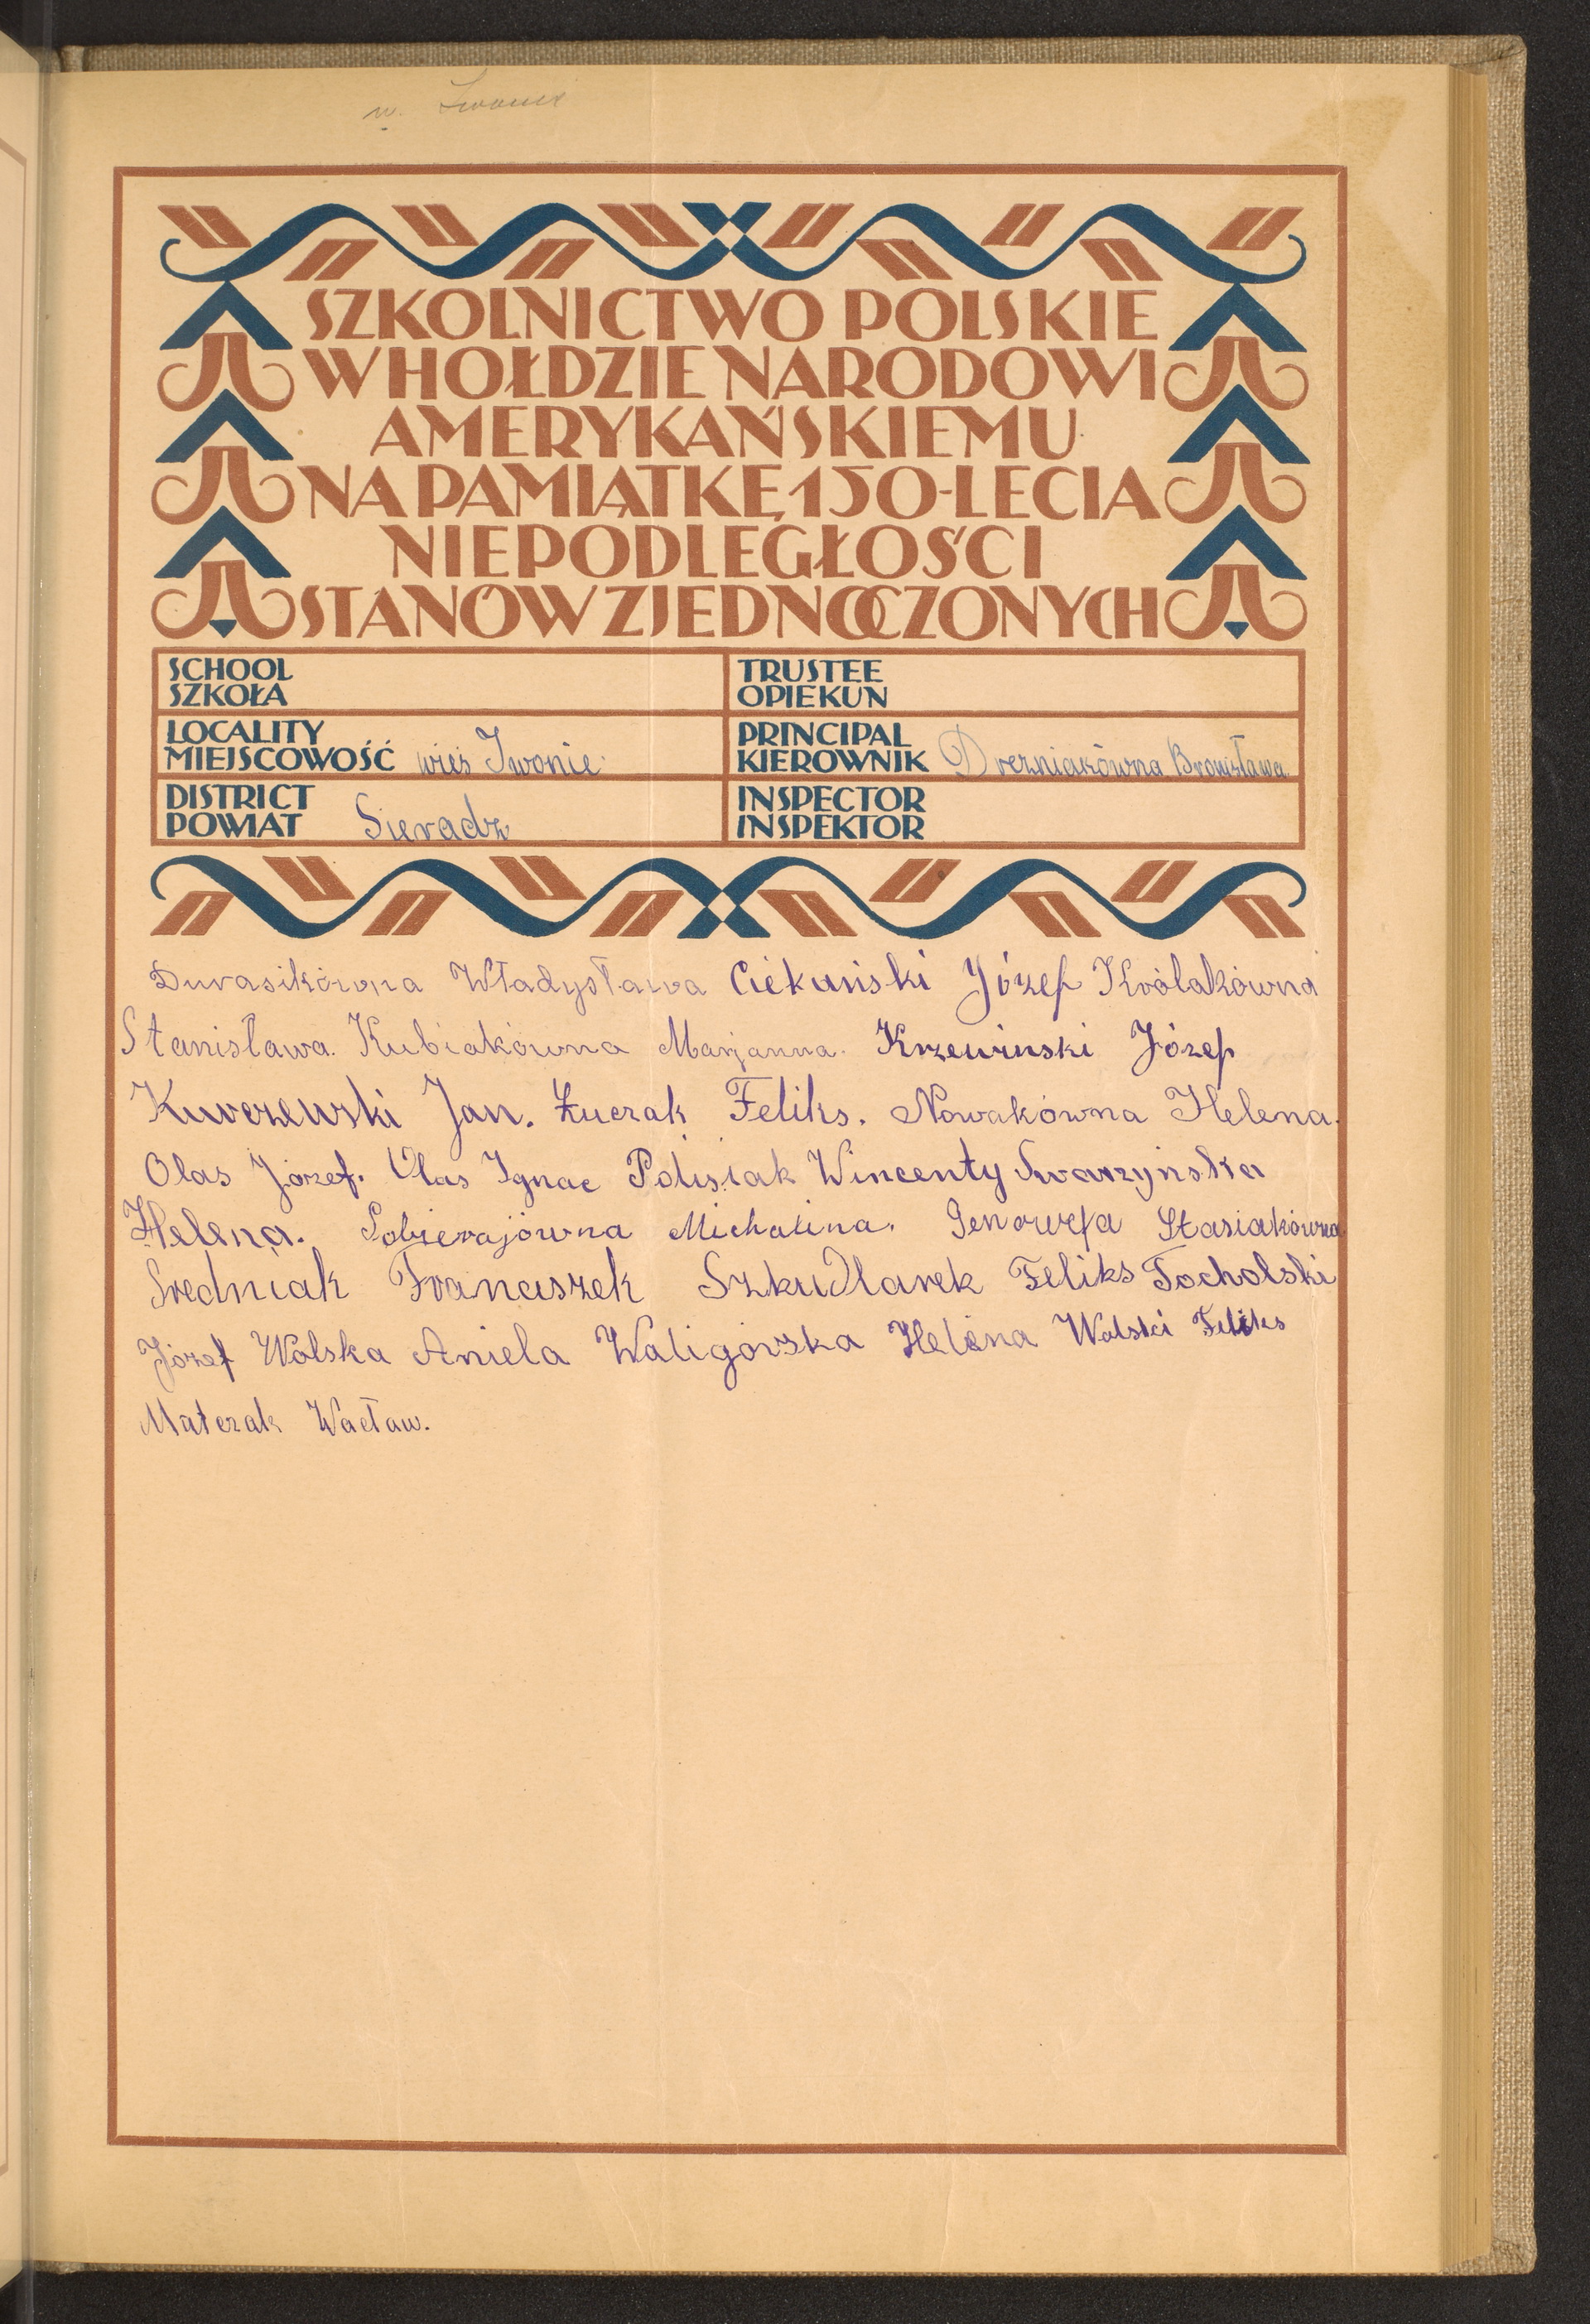 w. Iwonie
SZKOLNICTWO POLSKIE
W HOŁDZIE NARODOWI
AMERYKAŃSKIEMU
NA PAMIĄTKĘ 150-LECIA
NIEPODLEGŁOŚCI
STANÓW ZJEDNOCZONYCH
SCHOOL
SZKOŁA
TRUSTEE
OPIEKUN
LOCALITY
MIEJSCOWOŚĆ wieś Iwonie
PRINCIPAL
KIEROWNIK Drezniakówna Bronisława
DISTRICT
POWIAT Sieradz
INSPECTOR
INSPEKTOR
Durasikówna Władysława Ciekański Józef Królakówna
Stanisława. Kubiakówna Marjanna. Krzewinski Józef
Kurczewski Jan. Łuczak Feliks. Nowakówna Helena.
Olas Józef. Olas Ignac Polisiak Wincenty Swarzyńska
Helena. Sobierajówna Michalina. Genowefa Stasiakówna
Średniak Franciszek Szkudlarek Feliks Tocholski
Józef Wolska Aniela Waligórska Helena Wolski Feliks
Matczak Wacław.